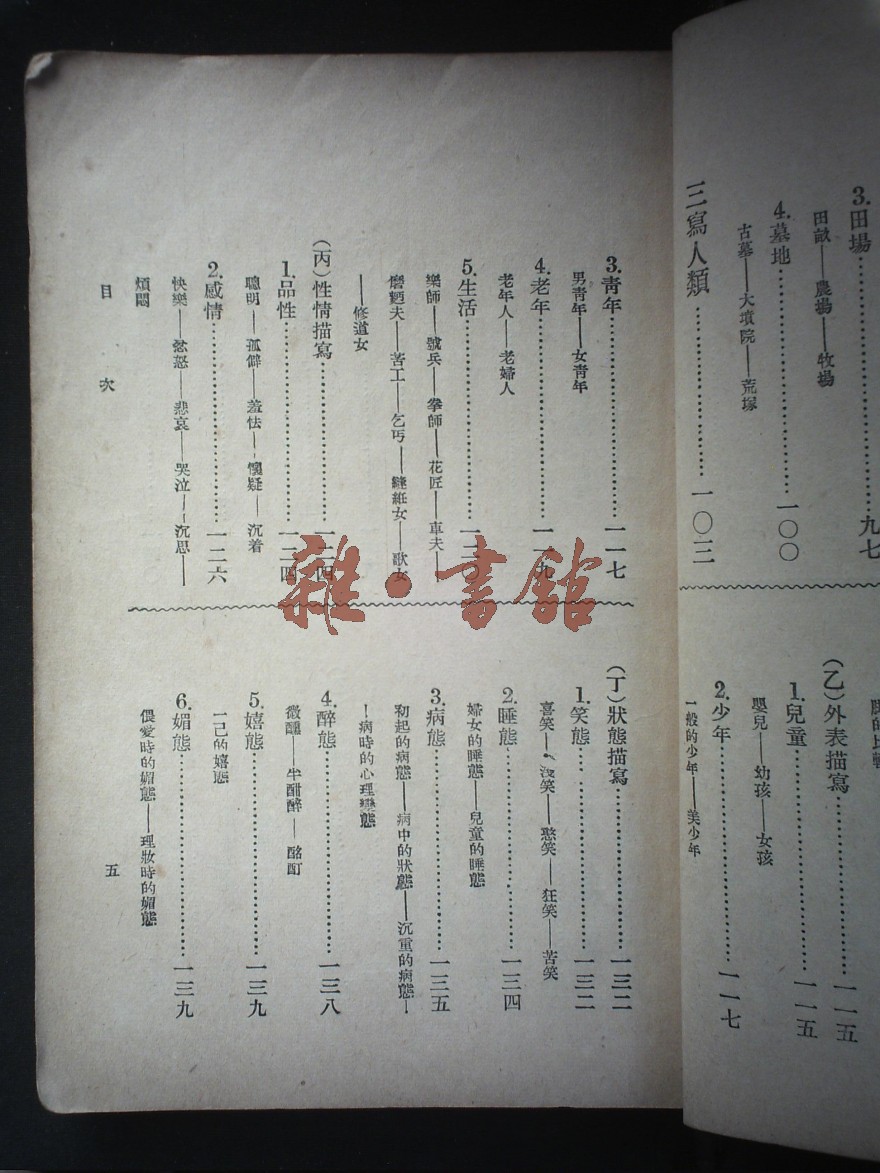 3.田場……九七
田畝——農場——牧場
4.墓地……一〇〇
古墓——大墳院——荒塚
三 寫人類……一〇三
(乙)外表描寫……一一五
1.兒童……一一五
嬰兒——幼孩——女孩
2.少年……一一七
一般的少年——美少年
3.青年……一一七
男青年——女青年
4.老年……一一九
老年人——老婦人
5.生活……一二〇
樂師——號兵——拳師——花匠——車夫——
磨麪夫——苦工——乞丐——縫紙女——歌女
——修道女
(丙)性情描寫……一二四
1.品性……一二四
聰明——孤僻——羞怯——懷疑——沉着
2.感情……一二六
快樂——忿怒——悲哀——哭泣——沉思——
煩悶
(丁)狀態描寫……一三二
1.笑態……一三二
喜笑——冷笑——憨笑——狂笑——苦笑
2.睡態……一三四
婦女的睡態——兒童的睡態
3.病態……一三五
初起的病態——病中的狀態——沉重的病態—
—病時的心理變態
4.醉態……一三八
微醺——半酣醉——酩酊
5.嬉態……一三九
一己的嬉態
6.媚態……一三九
偎愛時的媚態——理妝時的媚態
目 次
五
雜·書館